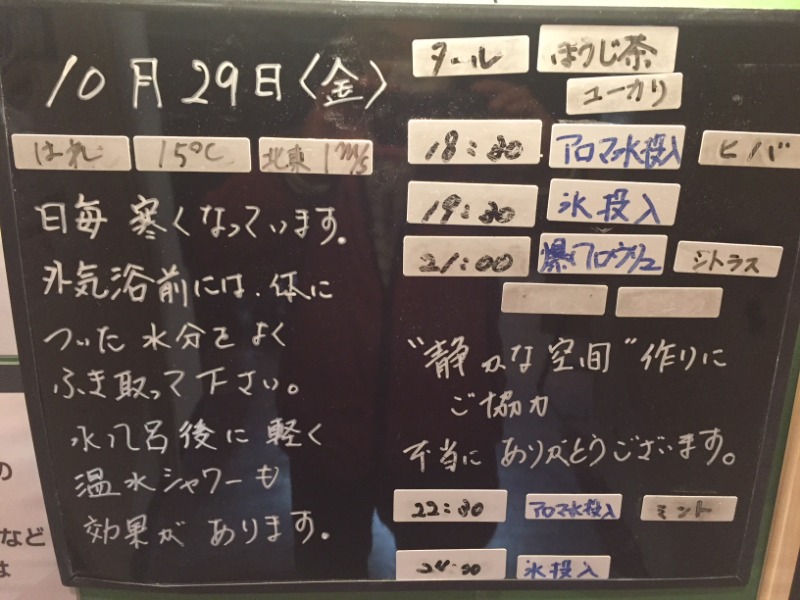 10月29日〈金〉
はれ 15℃ 北東 1m/s
日毎 寒くなっています。
外気浴前には、体に
ついた水分をよく
ふき取って下さい。
水風呂後に軽く
温水シャワーも
効果があります。
タール ほうじ茶
ユーカリ
18:30 アロマ水投入 ヒバ
19:30 氷投入
21:00 爆アロウリュ シトラス
"静かな空間"作りに
ご協力
本当にありがとうございます。
22:30 アロマ水投入 ミント
24:00 氷投入
の
など
は